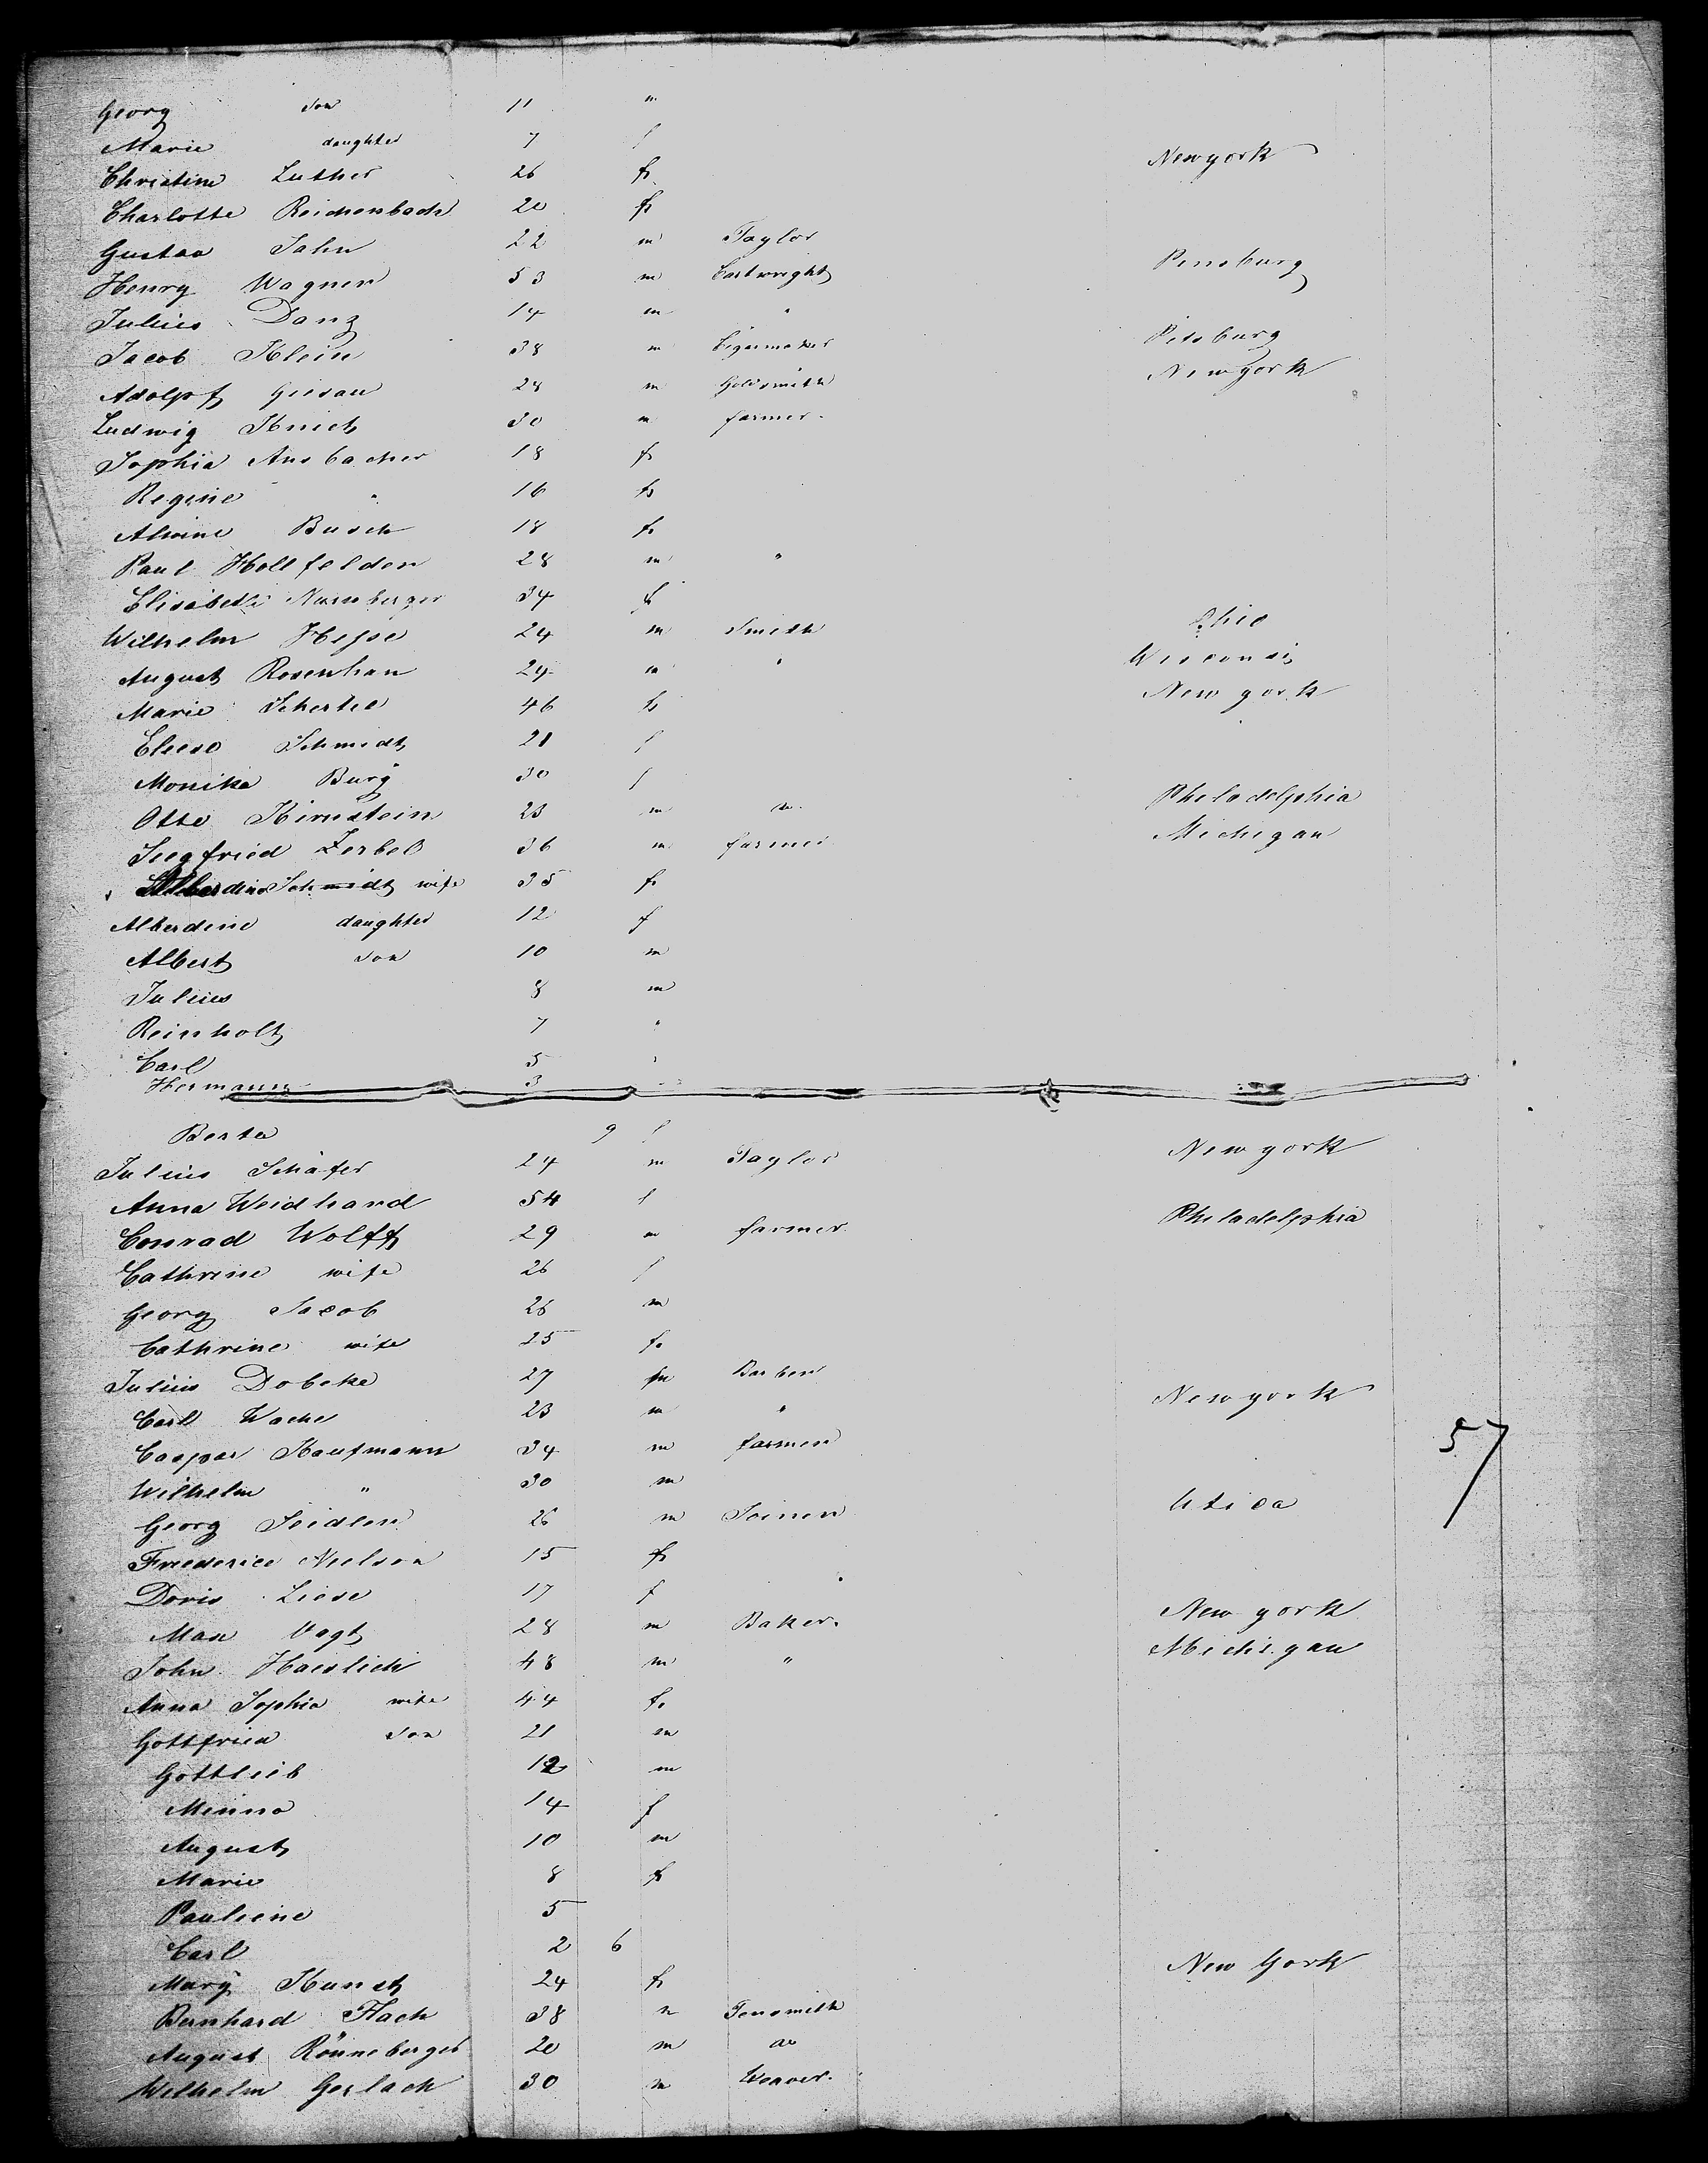 Georg son 11 m
Marie daughter 7 f
Christine Luther 26 f Newyork
Charlotte Reichenbach 20 f
Gustav Jahn 22 m Taylor
Henry Wagner 53 m Cartwright Pensburg
Julius Danz 14 m "
Jacob Klein 38 m Cigarmaker Pitsburg
Adolpf Giesau 28 m Goldsmith Newyork
Ludwig 30 m farmer.
Sophia Ansbacher 18 f
Regine " 16 f
Alwine Busch 18 f
Paul Hollfelder 28 m "
Elisabeth Nurnberger 34 f
Wilhelm Hesse 24 m Smith Ohio
August Rosenhan 24 m " Wisconsi
Marie 46 f New york
Eliese Schmidt 21 f
Monika Burg 30 f
Otto Kirnstein 23 m Philadelphia
Siegfried Zerbel 36 m farmer Michigan
Alberdine Schmidt wife 35 f
Alberdine daughter 12 f
Albert son 10 m
Julius 8 m
Reinholt 7 "
Carl 5 "
Hermann 3
Berta 9 f
Julius Schäfer 24 m Taylor New york
Anna Weidhard 54 f
Conrad Wolff 29 m farmer Philadelphia
Cathrine wife 26 f
Georg Jacob 26 m
Cathrine wife 25 f
Julius Dobeke 27 m Barber
Carl Wache 23 m " New york
Caspar Kaufmann 34 m farmer 57
Wilhelm " 30 m
Georg Seidler 26 m Utica
Friederice Nielson 15 f
Doris Liese 17 f
Max Vogt 28 m Baker. New york
John Haeslich 48 m " Michigan
Anna Sophia wife 44 f
Gottfried son 21 m
Gottlieb 12 m
Minna 14 f
August 10 m
Marie 8 f
Pauliene 5
Carl 2 6
Mary Kunst 24 f New York
Bernhard Flach 38 m
August Rönneberger 20 m do
Wilhelm Gerlach 30 m Weaver.